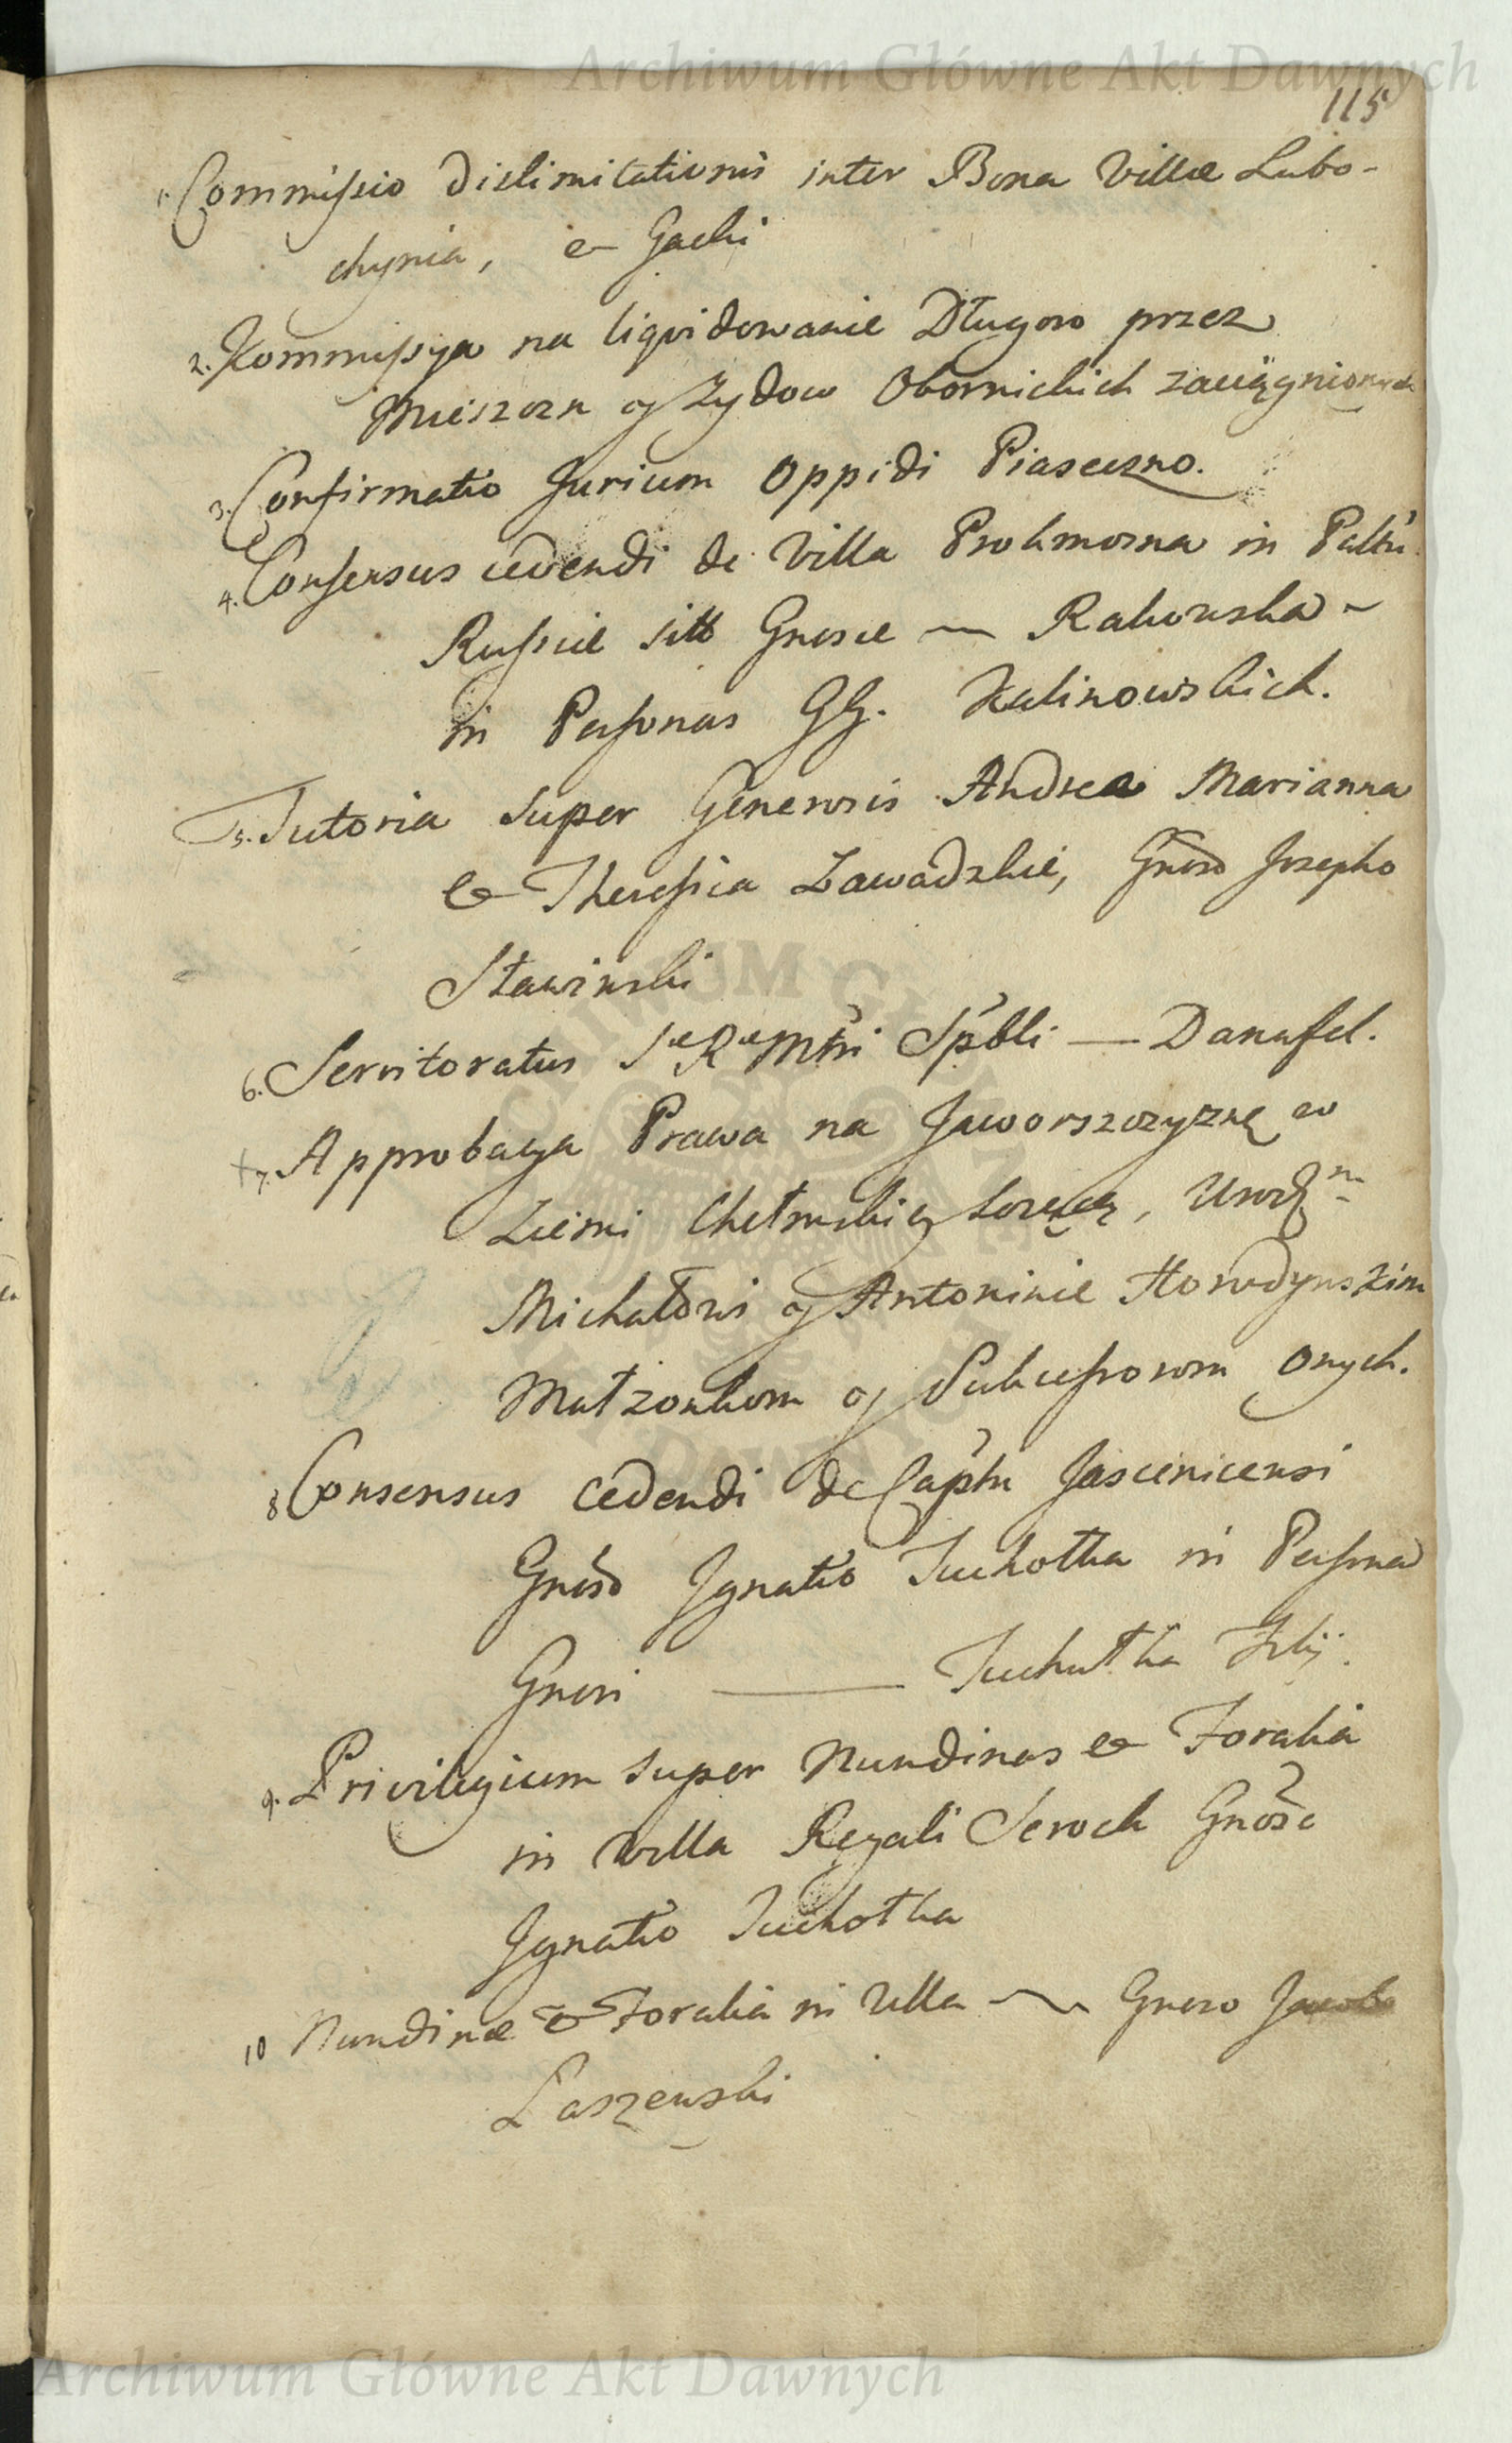 Archiwum Główne Akt Dawnych
115
1. Commissio dislimitationis inter Bona Villæ Lubo-
chynia, & Gacki
2. Kommissya na liqvidowanie Długow przez
Mieszczn y Zydow Obornickich zaciągnionych
3. Confirmatio Jurium Oppidi Piaseczno.
4. Consensus cedendi de Villa in Palttu
Russiæ sitt Gnosæ ~ Rakowska ~
in Personas GG. Kalinowskich.
5. Tutoria super Generosis Andrea Marianna
& Theressia Zawadzkie, Gnoso Josepho
Stawinski
6. Servitoratus Sæ Ræ Mtti Spbli — Danafel.
7. Approbacya Prawa na Jaworszczyznę w
Ziemi Chełmskiey lezącą, Urodzm
Michałowi y Antoninie Horodynskim
Małzonkom y Sukcessorom onych.
8 Consensus cedendi de Captu Jascenicensi
Gnoso Ignatio Suchotka in Persona
Gnosi —— Suchotka Filij.
9. Privilegium super Nundinas & Foralia
in Villa Regali Serock Gnoso
Ignatio Suchotka
10 Nundinæ & Foralia in Villa ~ Gnoso Jacobo
Łaszewski
Archiwum Główne Akt Dawnych